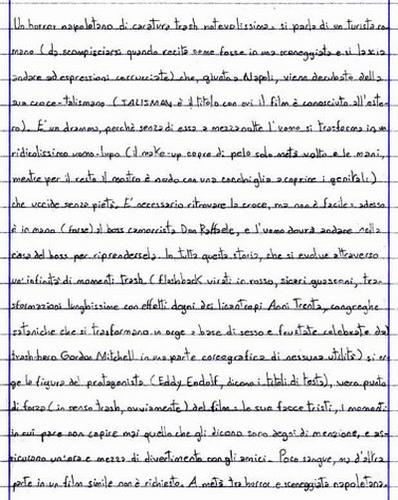 Un horror napoletano di caratura trash notevolissima: si parla di un turista ro-
mano (da scompisciarsi quando recita come fosse in una sceneggiata e si lascia
andare ad espressioni corrucciate) che, giunto a Napoli, viene derubato della
sua croce-talismano (TALISMAN è il titolo con cui il film è conosciuto all'este-
ro). E' un dramma, perchè senza di essa a mezzanotte l'uomo si trasforma in un
ridicolissimo uomo-lupo (il make-up copre di pelo solo metà volto e le mani,
mentre per il resto il mostro è nudo con una conchiglia a coprire i genitali)
che uccide senza pietà. E' necessario ritrovare la croce, ma non è facile: adesso
è in mano (forse) al boss camorrista Don Raffaele, e l'uomo dovrà andare nella
casa del boss per riprendersela. In tutta questa storia, che si evolve attraverso
un'infinità di momenti trash (flashback virati in rosso, sicari guasconi, tra-
sformazioni lunghissime con effetti degni dei licantropi Anni Trenta, congreghe
sataniche che si trasformano in orge a base di sesso e frustate celebrate dal
trash-hero Gordon Mitchell in una parte coreografica di nessuna utilità) si er-
ge la figura del protagonista (Eddy Endolf, dicono i titoli di testa), vero punto
di forza (in senso trash, ovviamente) del film: le sue facce tristi, i momenti
in cui pare non capire mai quello che gli dicono sono degni di menzione, e as-
sicurano un'ora e mezza di divertimento con gli amici. Poco sangue, ma d'altra
parte in un film simile non è richiesto. A metà tra horror e sceneggiata napoletana.